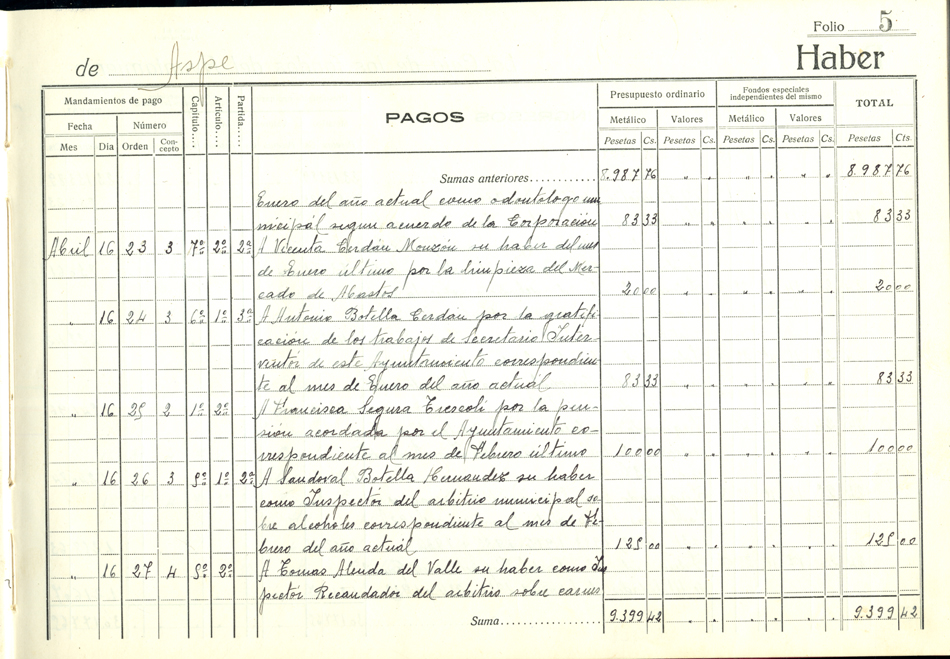 Folio 5
de Aspe Haber
Mandamientos de pago Capítulo.... Artículo.... Partida.... PAGOS Presupuesto ordinario Fondos especiales independientes del mismo TOTAL
Fecha Número Metálico Valores Metálico Valores
Mes Día Orden Concepto Pesetas Cs. Pesetas Cs. Pesetas Cs. Pesetas Cs. Pesetas Cts.
Sumas anteriores............ 8.987 76 " " " " " " 8.987 76
Enero del año actual como odontologo mu
nicipal segun acuerdo de la Corporación 83 33 " " " " " " 83 33
Abril 16 23 3 7º 2º 2ª A Vicenta Cerdán Monzón su haber del mes
de Enero último por la limpieza del Mer-
cado de Abastos 20 00 " " " " " " 20 00
" 16 24 3 6º 1º 3ª A Antonio Botella Cerdan por la gratifi
cación de los trabajos de Secretario Inter-
ventor de este Ayuntamiento correspondien
te al mes de Enero del año actual 83 33 " " " " " " 83 33
" 16 25 2 1º 2º A Francisca Segura Crescoli por la pen-
sión acordada por el Ayuntamiento co-
rrespondiente al mes de Febrero último 100 00 " " " " " " 100 00
" 16 26 3 5º 1º 2ª A Sandoval Botella Hernandez su haber
como Inspector del arbitrio municipal so-
bre alcoholes correspondiente al mes de Fe-
brero del año actual 125 00 " " " " " " 125 00
" 16 27 4 5º 2º A Tomas Alenda del Valle su haber como Ins
pector Recaudador del arbitrio sobre carnes
Suma.................... 9.399 42 " " " " " " 9.399 42